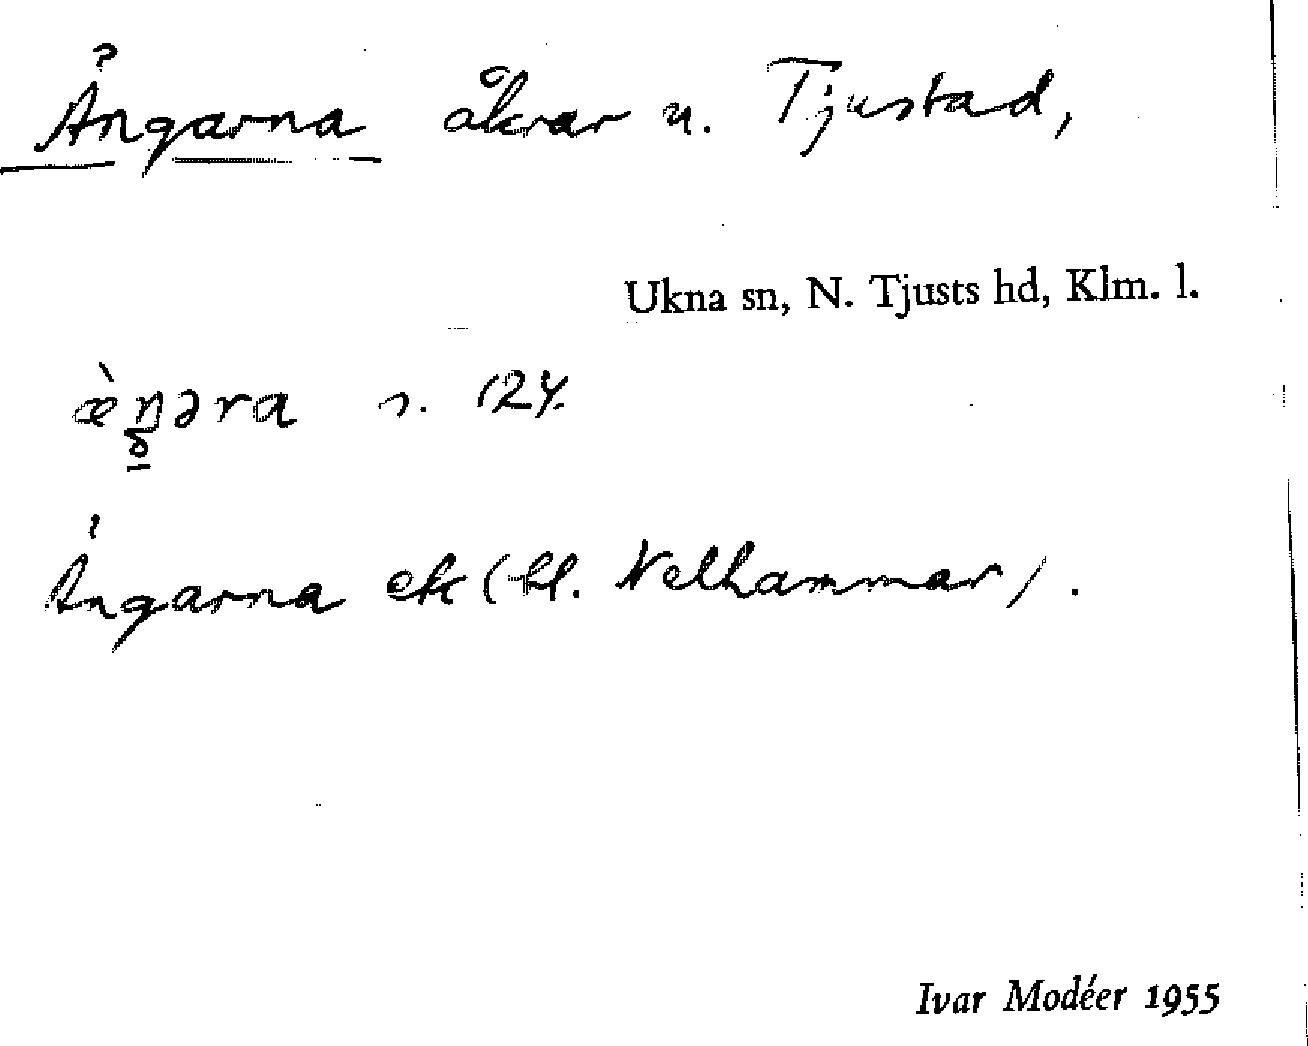 Ängarna åkrar u. Tjustad,
Ukna sn, N. Tjusts hd, Klm. l.
æ̀ŋəra s. 124.
Ängarna ek (bl. Nelhammar).
Ivar Modéer 1955